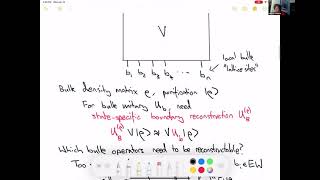 V
b₁ b₂ b₃ b₄ ... bₙ
local bulk
"lattice sites"
Bulk density matrix ρ, purification |ρ⟩
For bulk unitary U_b, need
state-specific boundary reconstruction U_B^(ρ)
U_B^(ρ) V|ρ⟩ ≈ V U_b |ρ⟩
Which bulk operators need to be reconstructable?
Too